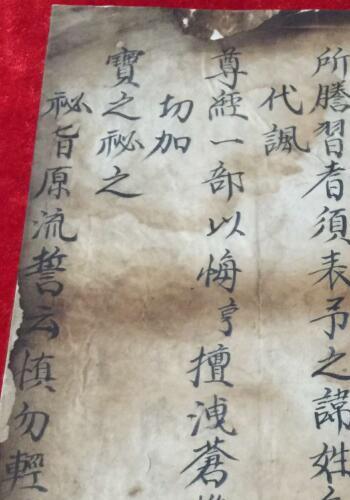 所騰習者須表予之諱姓
代諷
尊經一部以悔亨擅洩蒼
切加
寶之祕之
祕旨原流誓云慎勿輕